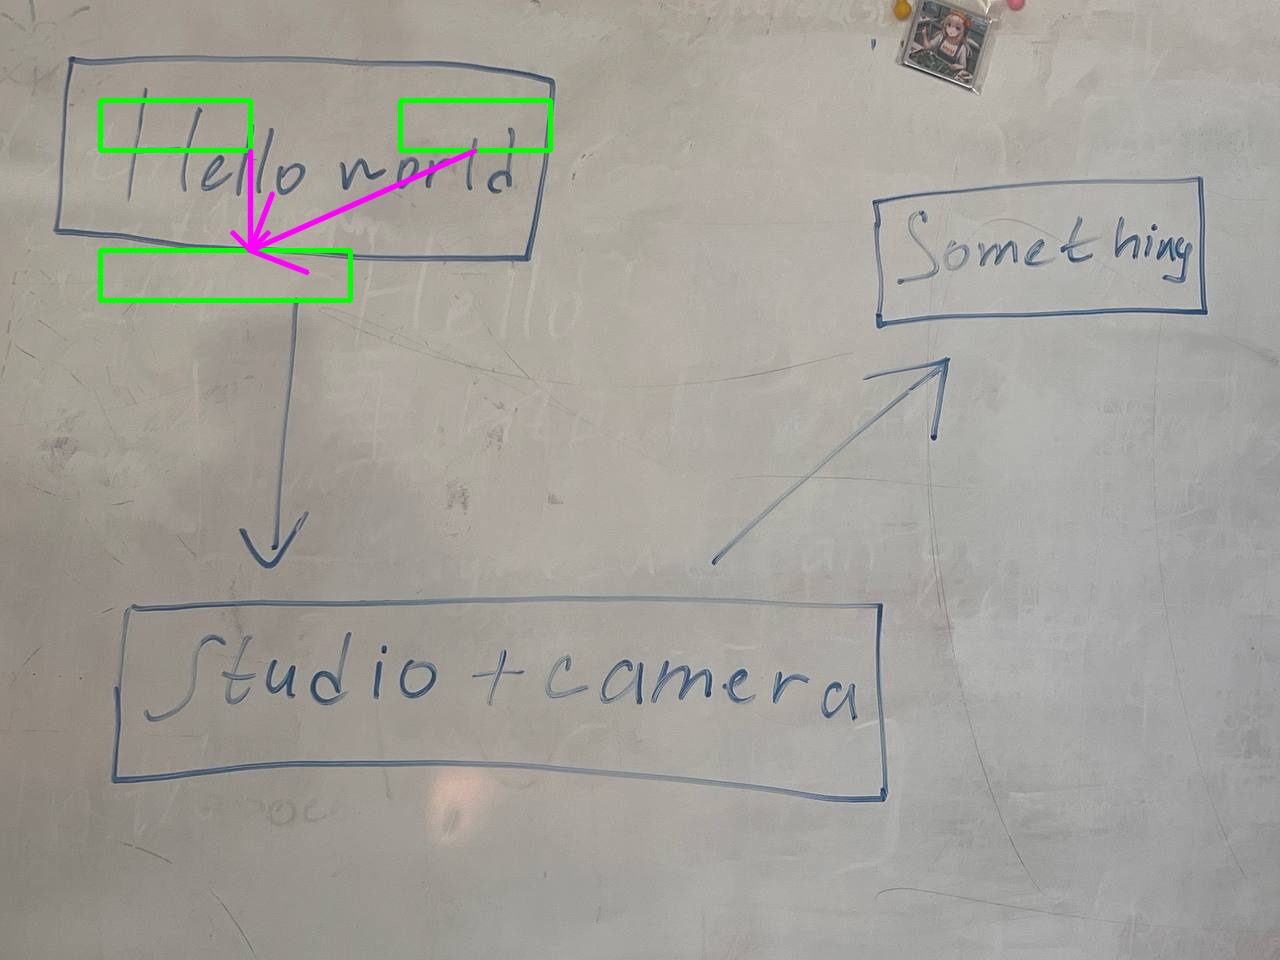 Hello world
Something
Hello
Studio + camera